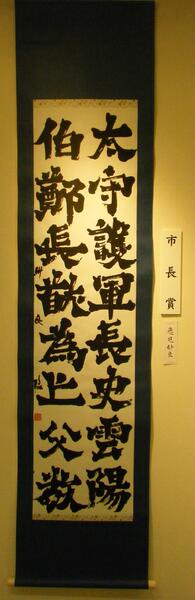 太守護軍長史雲陽
伯鄭長猷為亡父敬
市長賞